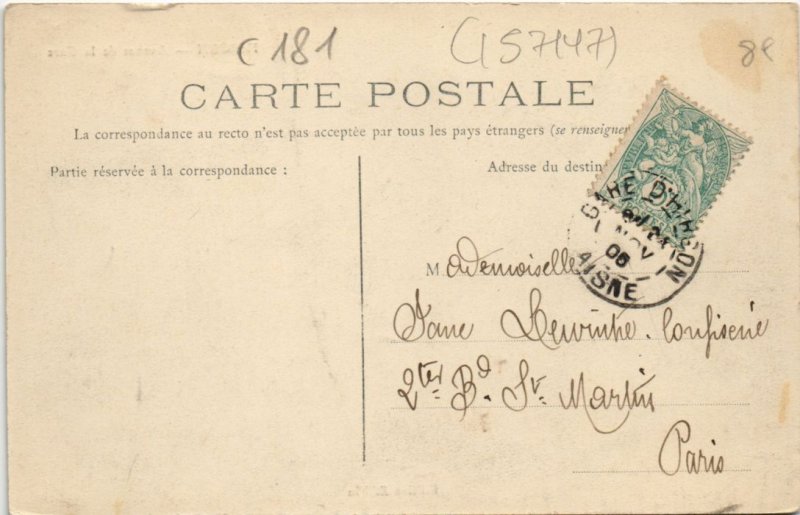 C 181
(157147)
8€
CARTE POSTALE
La correspondance au recto n'est pas acceptée par tous les pays étrangers (se renseigner
Partie réservée à la correspondance :
Adresse du destin
GARE D'HIRSON
NOV
06
AISNE
Mademoiselle
Jane Confiserie
2ter Bd. St. Martin
Paris